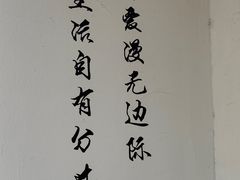 爱漫无边际
生活自有分寸